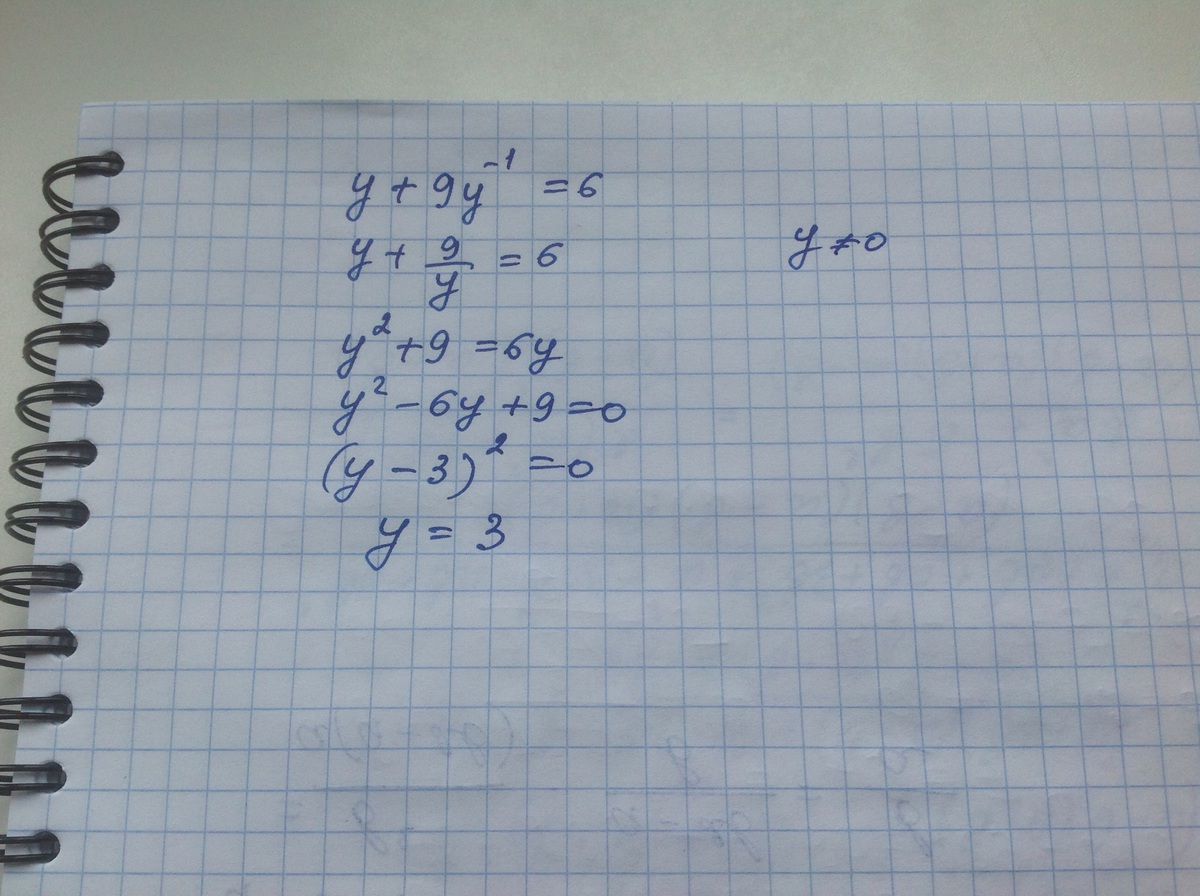 y + 9y⁻¹ = 6
y + 9/y = 6
y ≠ 0
y² + 9 = 6y
y² - 6y + 9 = 0
(y - 3)² = 0
y = 3